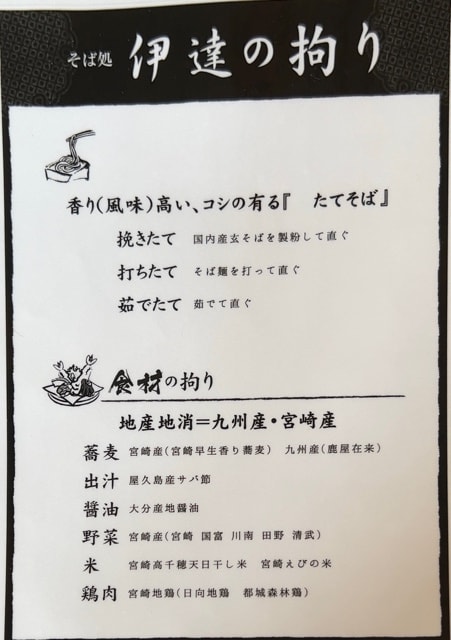 そば処 伊達の拘り
香り(風味)高い、コシの有る『　たてそば』
挽きたて　国内産玄そばを製粉して直ぐ
打ちたて　そば麺を打って直ぐ
茹でたて　茹でて直ぐ
食材の拘り
地産地消=九州産・宮崎産
蕎麦　宮崎産(宮崎早生香り蕎麦)　九州産(鹿屋在来)
出汁　屋久島産サバ節
醤油　大分産地醤油
野菜　宮崎産(宮崎 国富 川南 田野 清武)
米　宮崎高千穂天日干し米　宮崎えびの米
鶏肉　宮崎地鶏(日向地鶏　都城森林鶏)